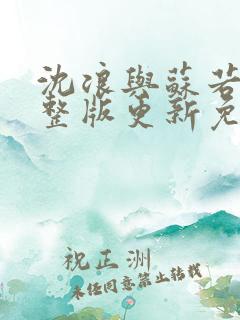 沈浪與蘇若
整版更新免
祝正洲
未经同意禁止转载